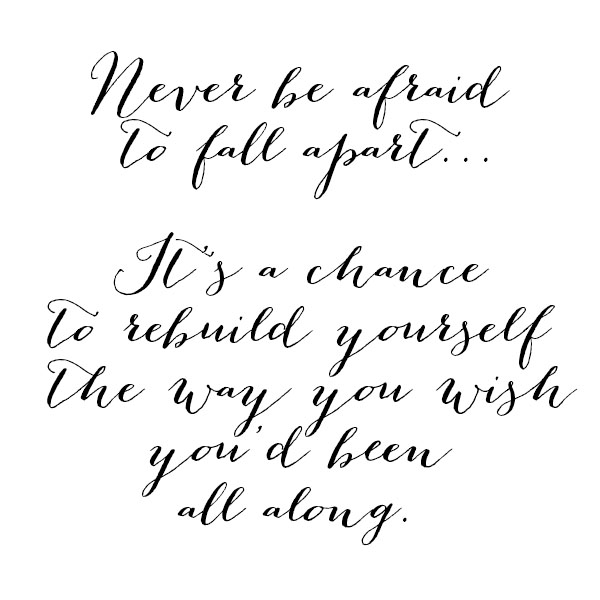 Never be afraid
to fall apart...
It's a chance
to rebuild yourself
the way you wish
you'd been
all along.